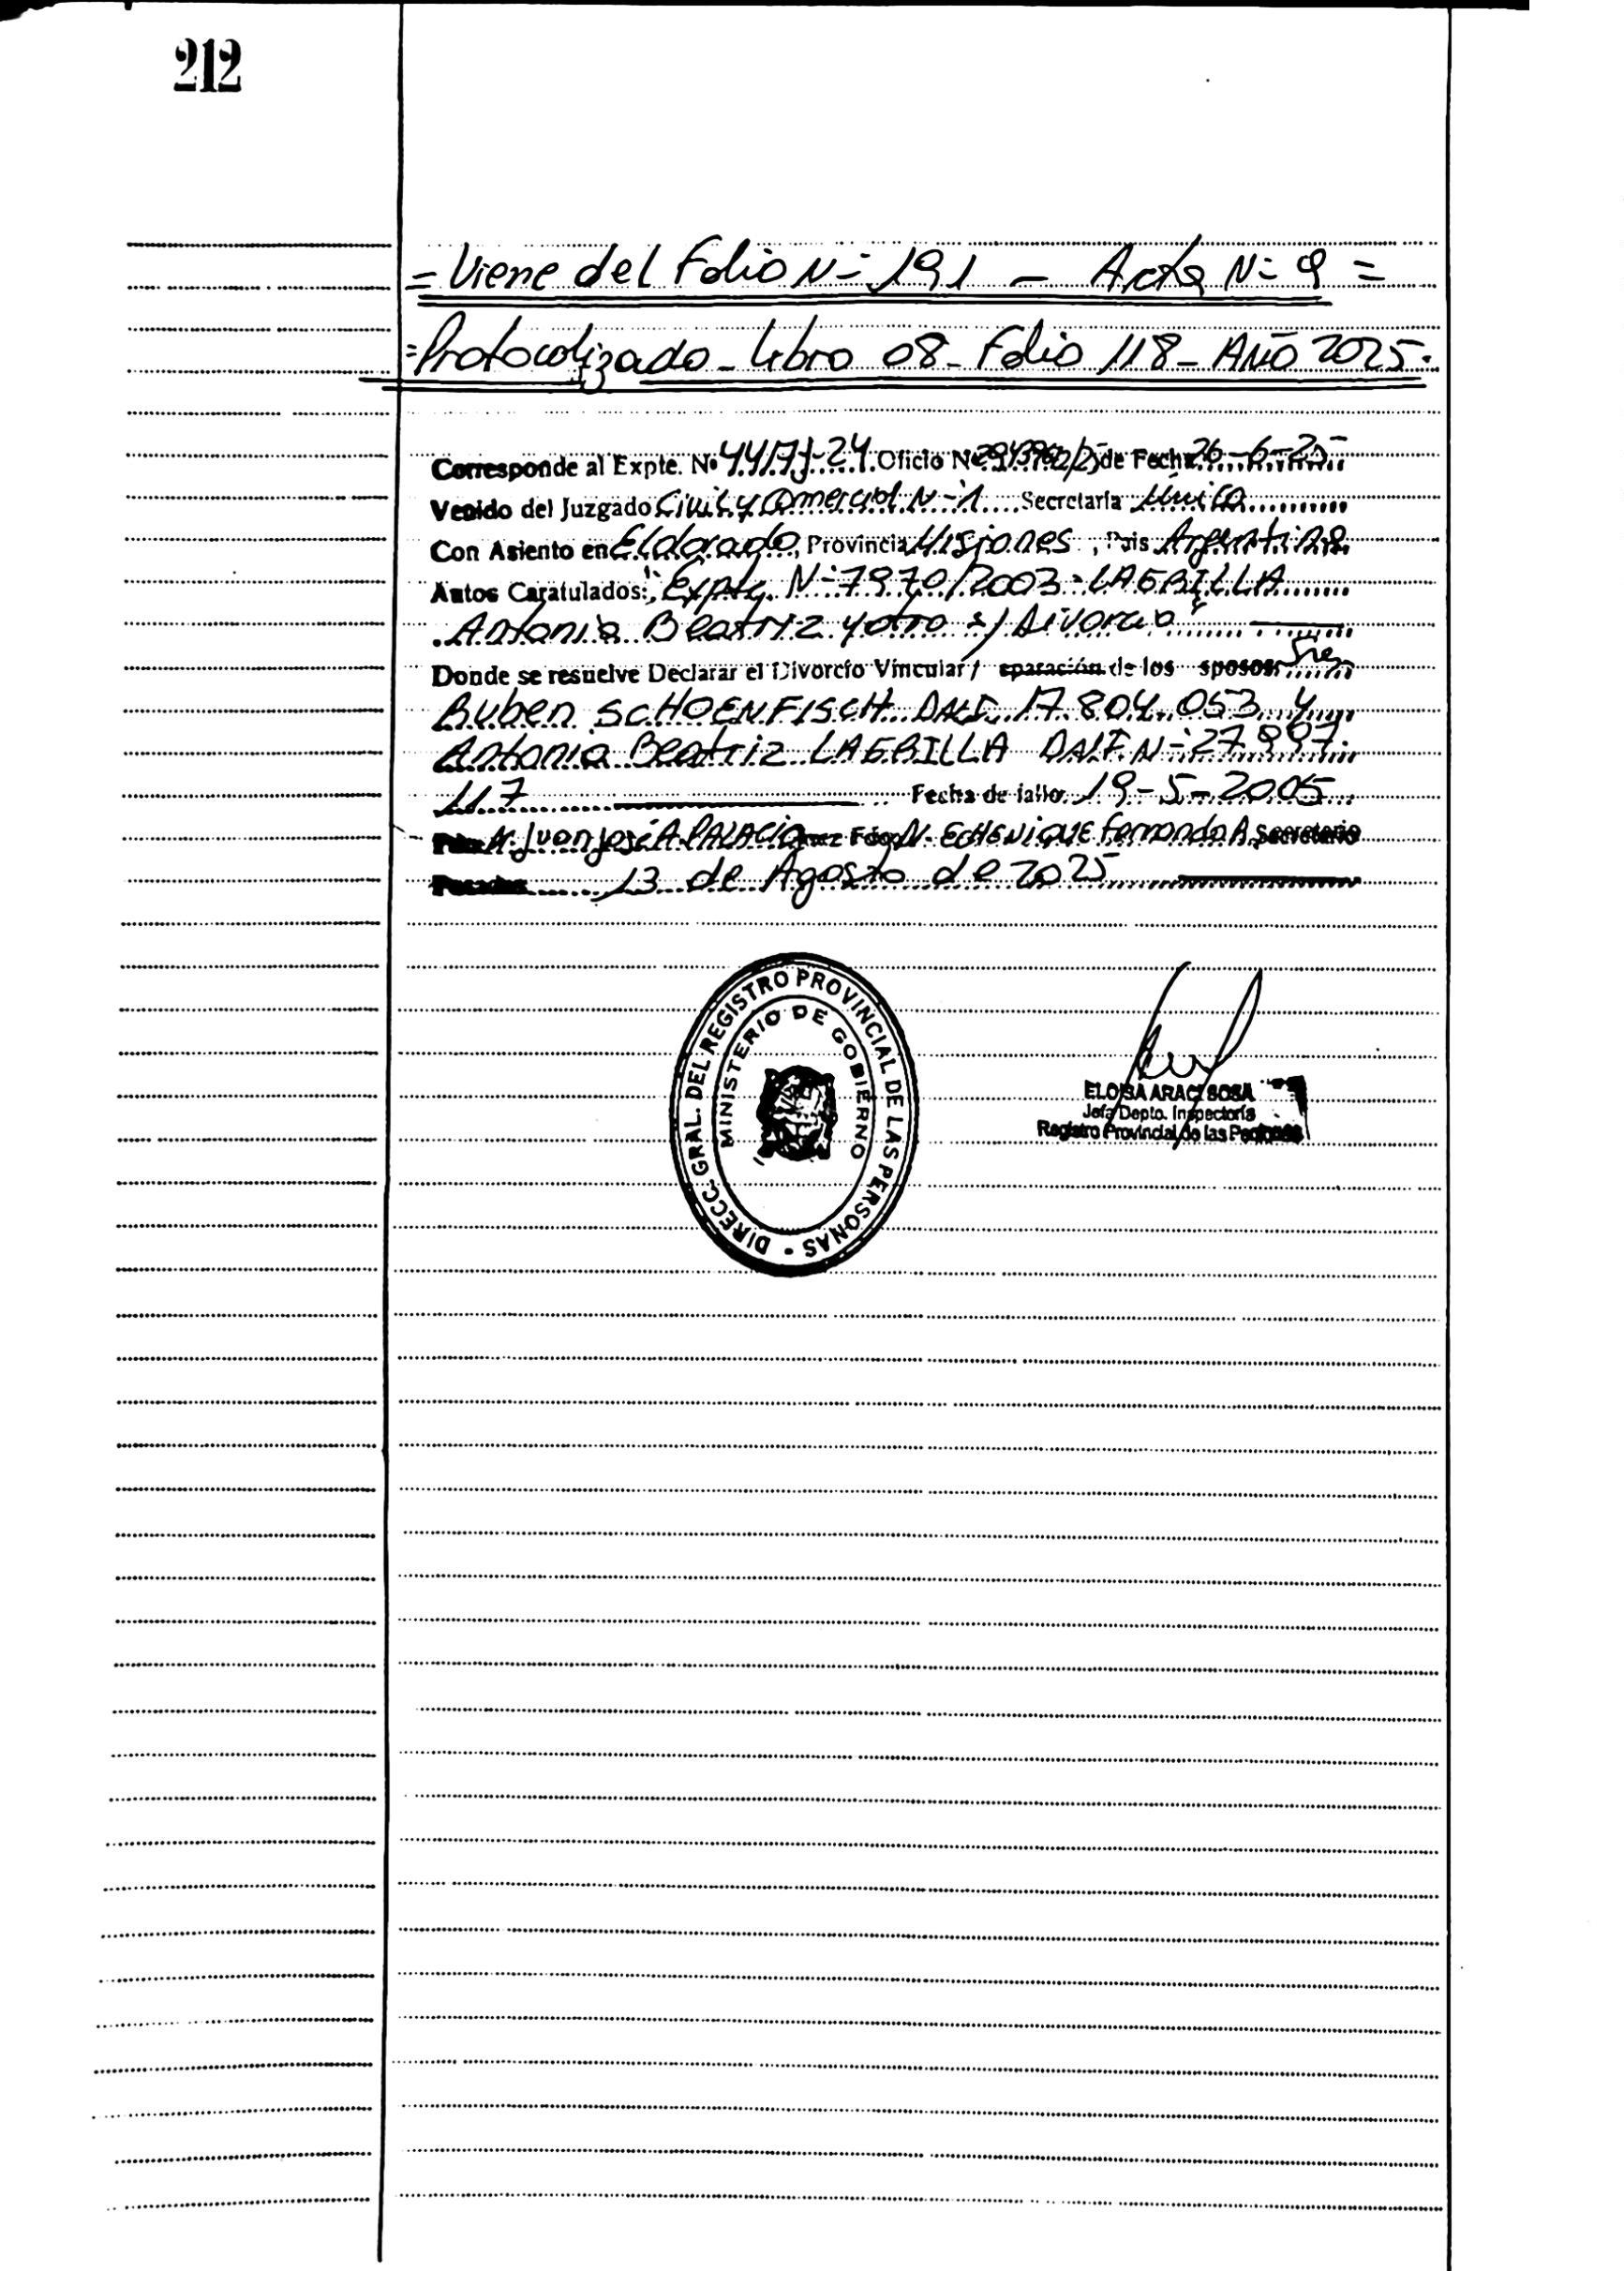 212
= Viene del Folio N= 191 - Acta N= 9 =
= Protocolizado - Libro 08 - Folio 118 - AÑO 2025.
Corresponde al Expte. Nº Oficio Nº de Fecha 26-6-25
Venido del Juzgado Civil y Comercial N-1 Secretaría Única
Con Asiento en Eldorado, Provincia Misiones, Pais Argentina
Autos Caratulados: "Expte. N=7970/2003 - LAGBILLA
Antonia Beatriz y otro s/ Divorcio"
Donde se resuelve Declarar el Divorcio Vincular / eparación de los sposos: Sres
Ruben SCHOENFISCH DNI 17.804.053 y
Antonia Beatriz LAGBILLA DNI N=27.997.
117 Fecha de fallo 19-5-2005
Juan José A. PALACIO Juez Fdo. ECHENIQUE Fernando A Secretario
Posadas 13 de Agosto de 2025
DIRECC. GRAL. DEL REGISTRO PROVINCIAL DE LAS PERSONAS -
MINISTERIO DE GOBIERNO
ELOISA ARACI SOSA
Jefa Depto. Inspectoría
Registro Provincial de las Personas